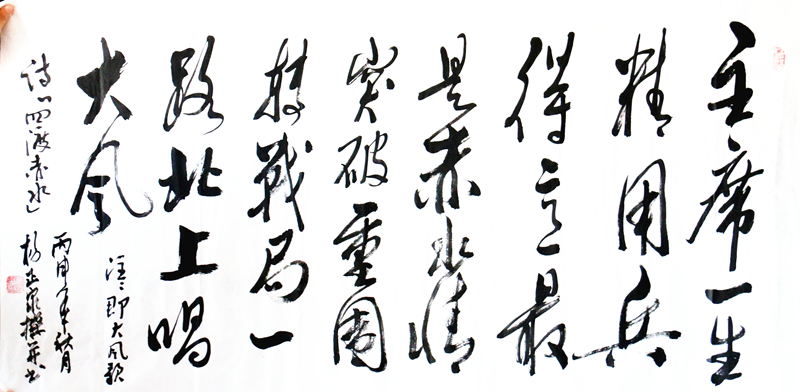 主席一生
精用兵
得意最
是赤水情
突破重围
转战局一
路北上唱
大风
注：即大风歌
诗《四渡赤水》
丙申年秋月
杨正泉撰并书